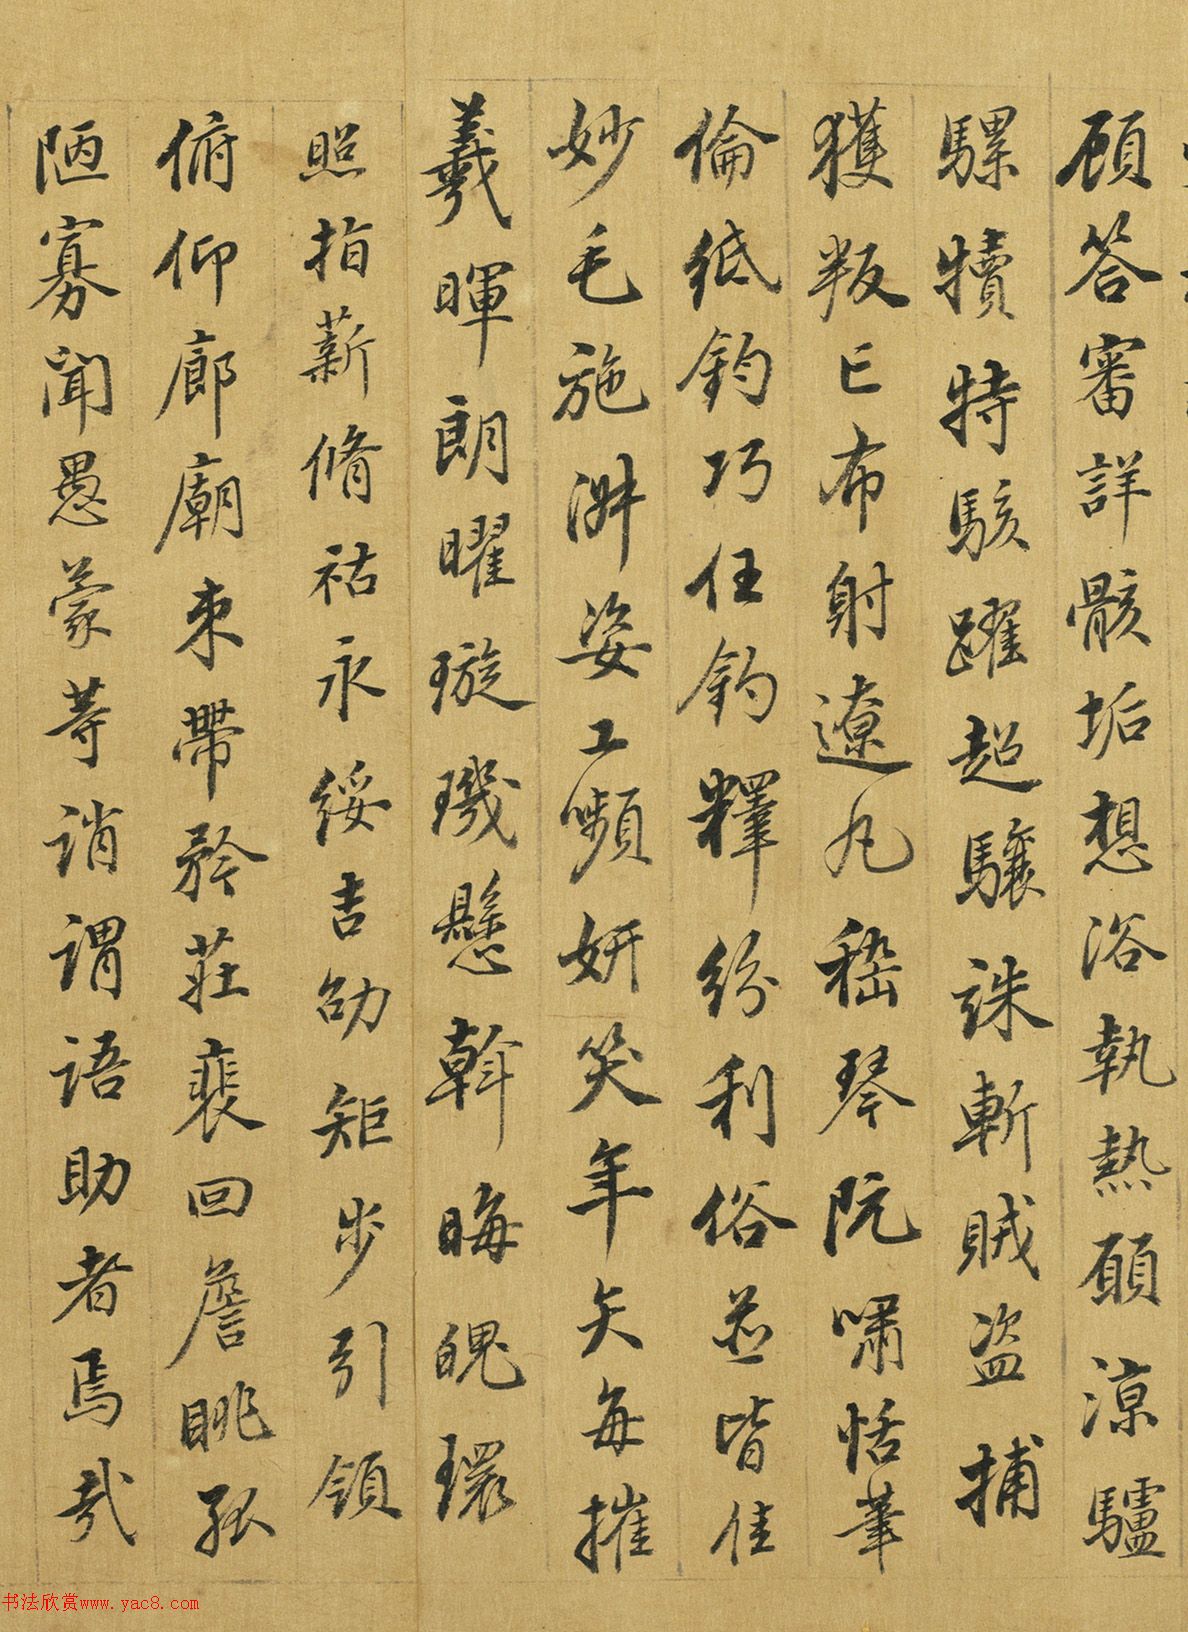 顧答審詳骸垢想浴執熱願涼驢
騾犢特駭躍超驤誅斬賊盜捕
獲叛亡布射遼丸嵇琴阮嘯恬筆
倫紙鈞巧任釣釋紛利俗並皆佳
妙毛施淑姿工嚬妍笑年矢每摧
羲暉朗曜璇璣懸斡晦魄環
照指薪脩祜永綏吉劭矩步引領
俯仰廊廟束帶矜莊裴回詹眺孤
陋寡聞愚蒙等誚謂語助者焉哉
书法欣赏www.yac8.com